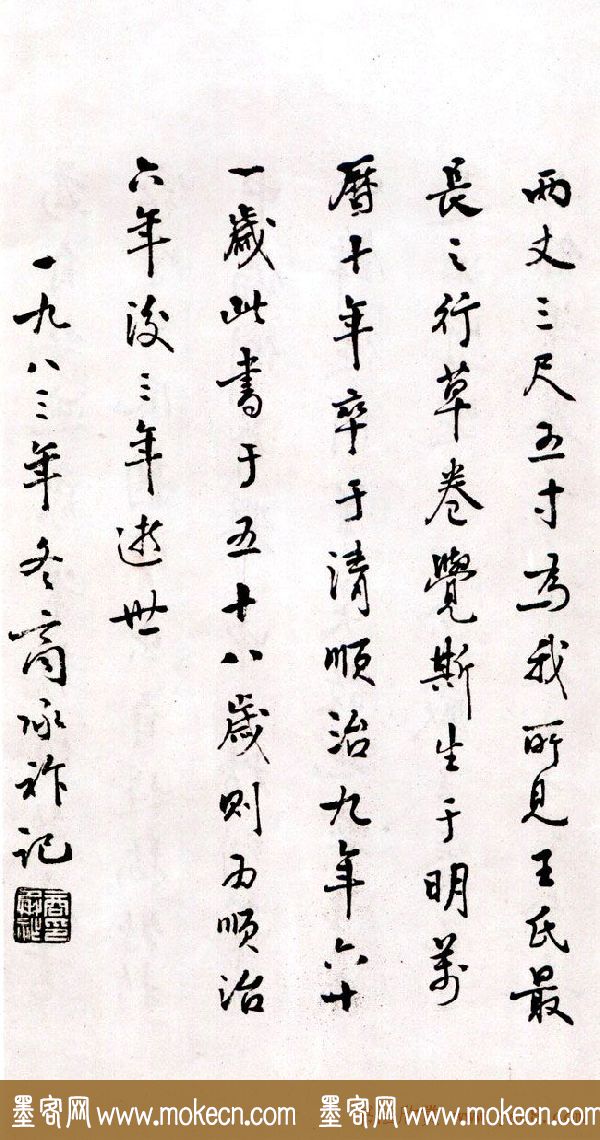 兩丈三尺五寸為我所見王氏最
長之行草卷覺斯生于明萬
曆十年卒于清順治九年六十
一歲此書于五十八歲則為順治
六年後三年逝世
一九八三年冬商承祚記
商承祚印
墨客网 www.mokecn.com 墨客网 www.mokecn.com